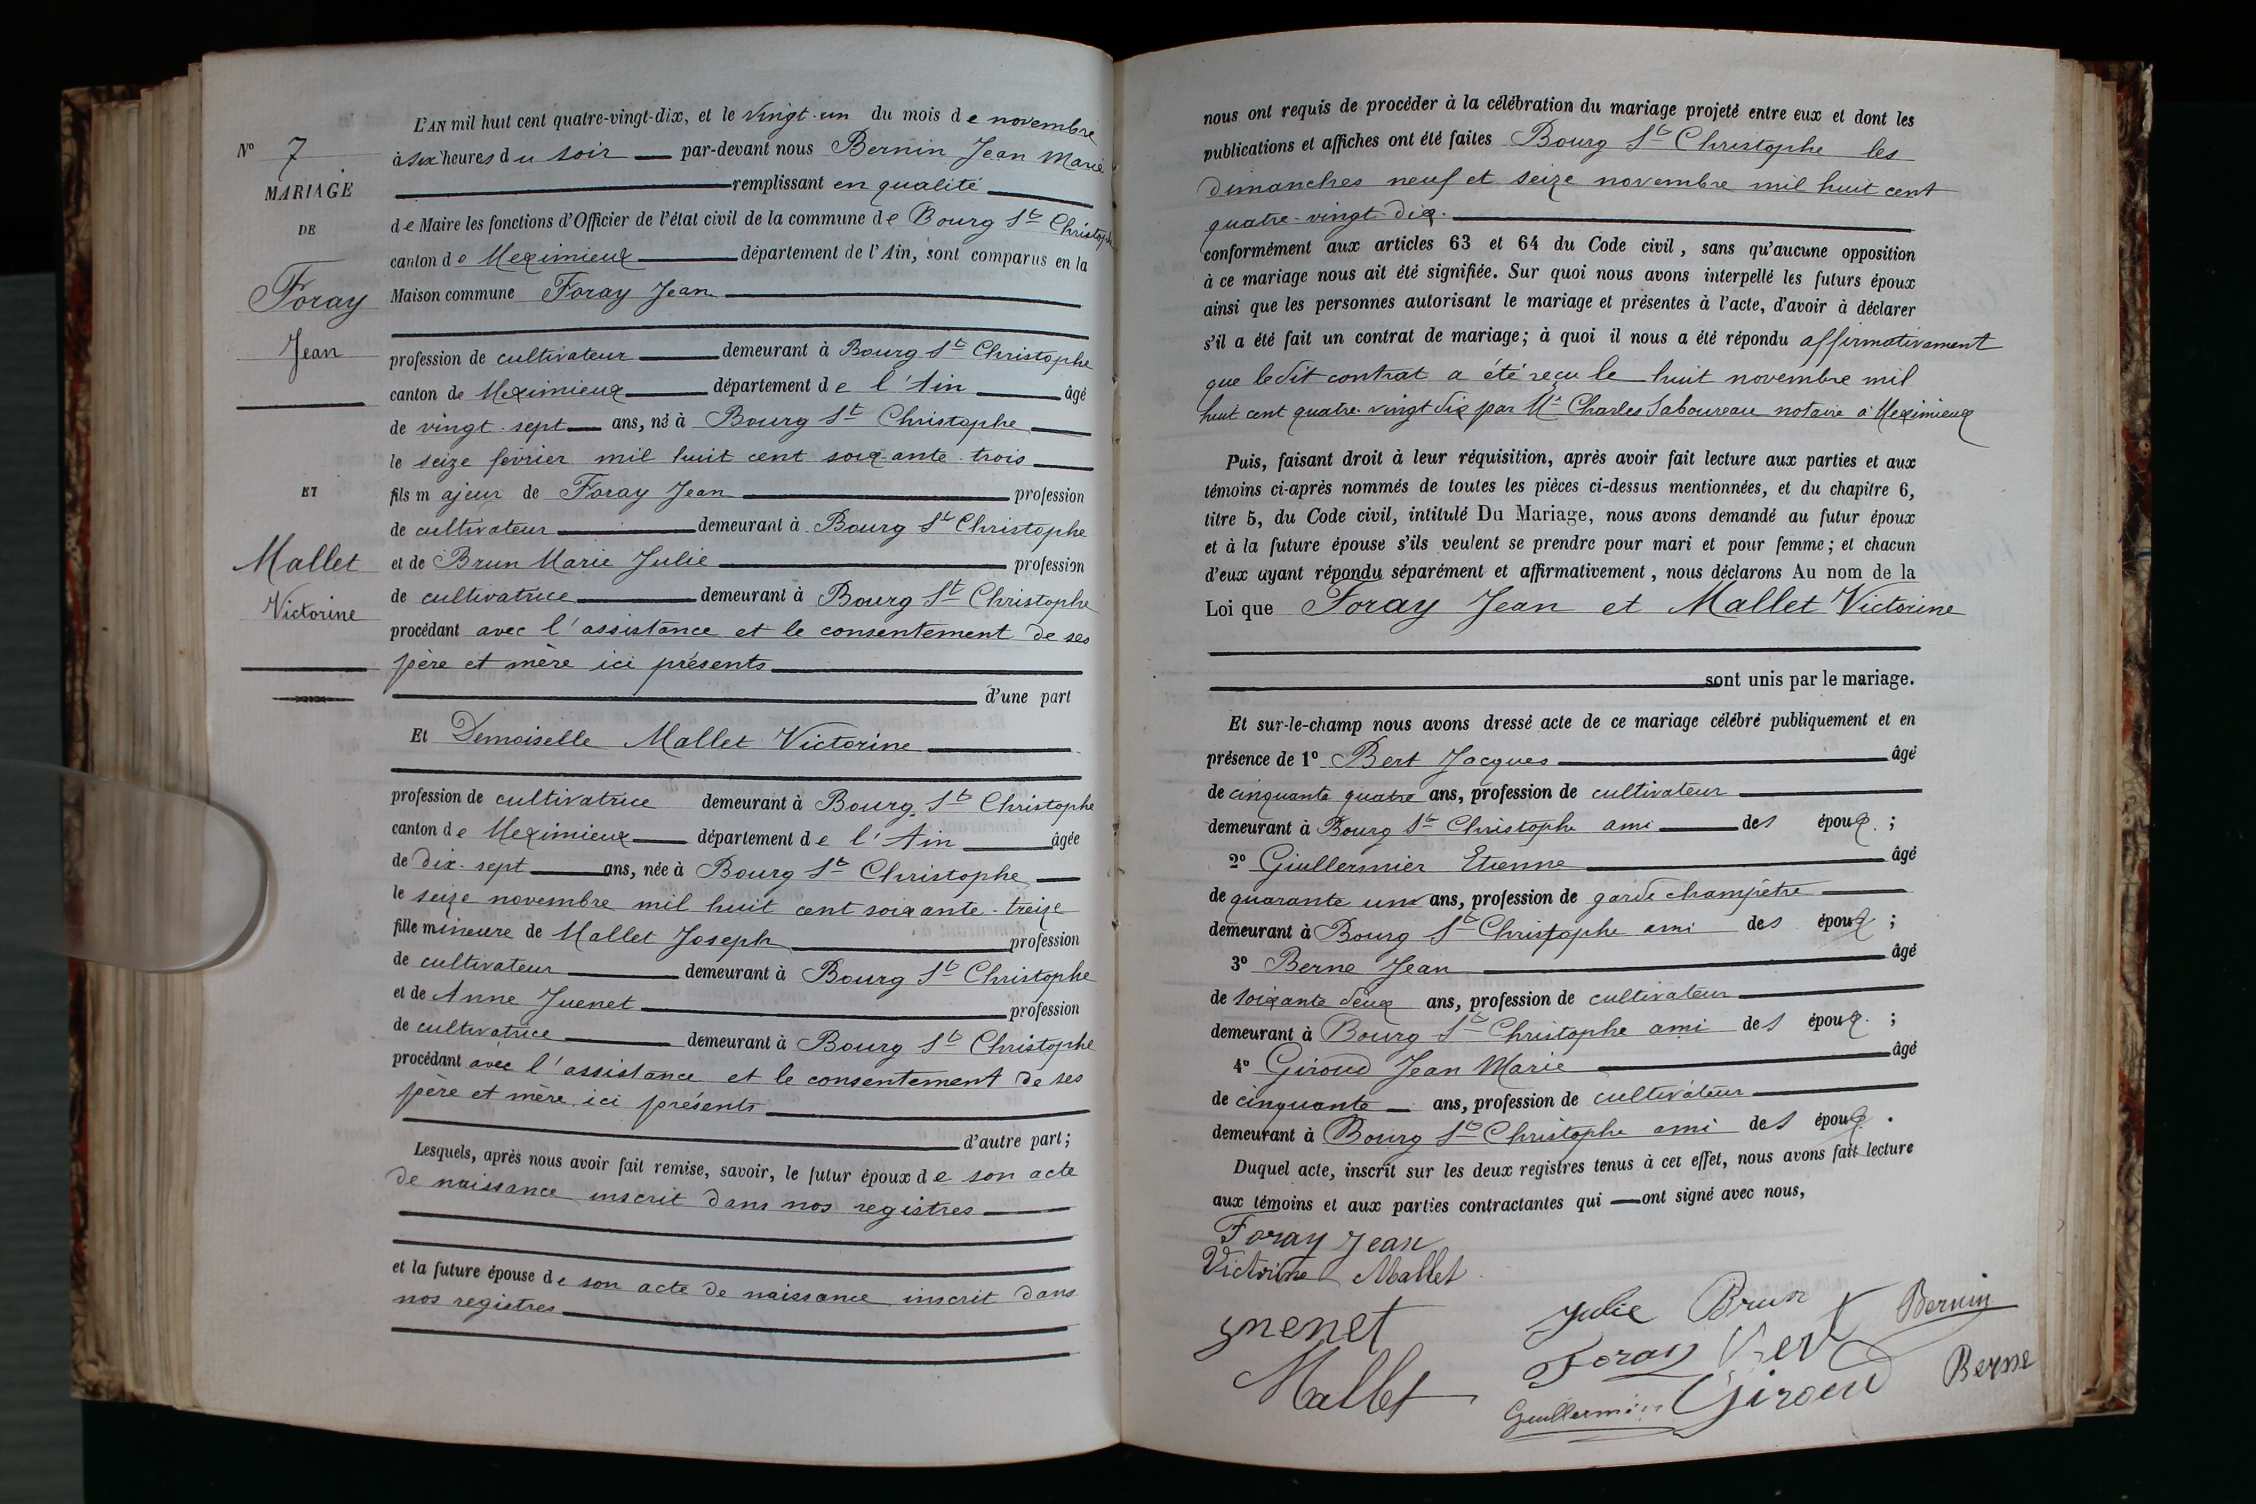 N° 7
MARIAGE
DE
Foray
Jean
ET
Mallet
Victorine
L'AN mil huit cent quatre-vingt-dix, et le vingt-un du mois de novembre
à six heures du soir par-devant nous Bernin Jean Marie
remplissant en qualité
de Maire les fonctions d'Officier de l'état civil de la commune de Bourg St Christophe
canton de Meximieux département de l'Ain, sont comparus en la
Maison commune Foray Jean
profession de cultivateur demeurant à Bourg St Christophe
canton de Meximieux département de l'Ain âgé
de vingt-sept ans, né à Bourg St Christophe
le seize février mil huit cent soixante-trois
fils majeur de Foray Jean profession
de cultivateur demeurant à Bourg St Christophe
et de Brun Marie Julie profession
de cultivatrice demeurant à Bourg St Christophe
procédant avec l'assistance et le consentement de ses
père et mère ici présents
d'une part
Et Demoiselle Mallet Victorine
profession de cultivatrice demeurant à Bourg St Christophe
canton de Meximieux département de l'Ain âgée
de dix-sept ans, née à Bourg St Christophe
le seize novembre mil huit cent soixante-treize
fille mineure de Mallet Joseph profession
de cultivateur demeurant à Bourg St Christophe
et de Anne Juenet profession
de cultivatrice demeurant à Bourg St Christophe
procédant avec l'assistance et le consentement de ses
père et mère ici présents
d'autre part;
Lesquels, après nous avoir fait remise, savoir, le futur époux de son acte
de naissance inscrit dans nos registres
et la future épouse de son acte de naissance inscrit dans
nos registres
nous ont requis de procéder à la célébration du mariage projeté entre eux et dont les
publications et affiches ont été faites Bourg St Christophe les
dimanches neuf et seize novembre mil huit cent
quatre-vingt-dix.
conformément aux articles 63 et 64 du Code civil, sans qu'aucune opposition
à ce mariage nous ait été signifiée. Sur quoi nous avons interpellé les futurs époux
ainsi que les personnes autorisant le mariage et présentes à l'acte, d'avoir à déclarer
s'il a été fait un contrat de mariage; à quoi il nous a été répondu affirmativement
que le dit contrat a été reçu le huit novembre mil
huit cent quatre-vingt dix par Me Charles Saboureau notaire à Meximieux
Puis, faisant droit à leur réquisition, après avoir fait lecture aux parties et aux
témoins ci-après nommés de toutes les pièces ci-dessus mentionnées, et du chapitre 6,
titre 5, du Code civil, intitulé Du Mariage, nous avons demandé au futur époux
et à la future épouse s'ils veulent se prendre pour mari et pour femme; et chacun
d'eux ayant répondu séparément et affirmativement, nous déclarons Au nom de la
Loi que Foray Jean et Mallet Victorine
sont unis par le mariage.
Et sur-le-champ nous avons dressé acte de ce mariage célébré publiquement et en
présence de 1° Bert Jacques âgé
de cinquante quatre ans, profession de cultivateur
demeurant à Bourg St Christophe ami des époux;
2° Giullermier Etienne âgé
de quarante un ans, profession de garde champêtre
demeurant à Bourg St Christophe ami des époux;
3° Berne Jean âgé
de soixante deux ans, profession de cultivateur
demeurant à Bourg St Christophe ami des époux;
4° Giroud Jean Marie âgé
de cinquante ans, profession de cultivateur
demeurant à Bourg St Christophe ami des époux.
Duquel acte, inscrit sur les deux registres tenus à cet effet, nous avons fait lecture
aux témoins et aux parties contractantes qui ont signé avec nous,
Foray Jean
Victorine Mallet
Julie Brun
Bernin
Juenet
Foray Bert
Berne
Mallet
Guillermier Giroud